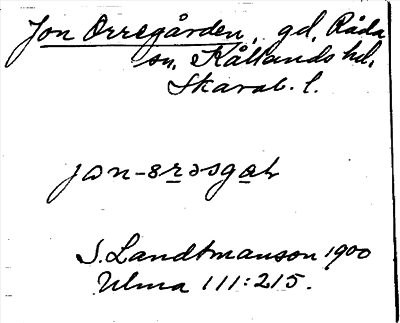 Jon Orregården, gd, Råda
sn, Kållands hd,
Skarab. l.
S. Landtmanson 1900
Ulma 111:215.